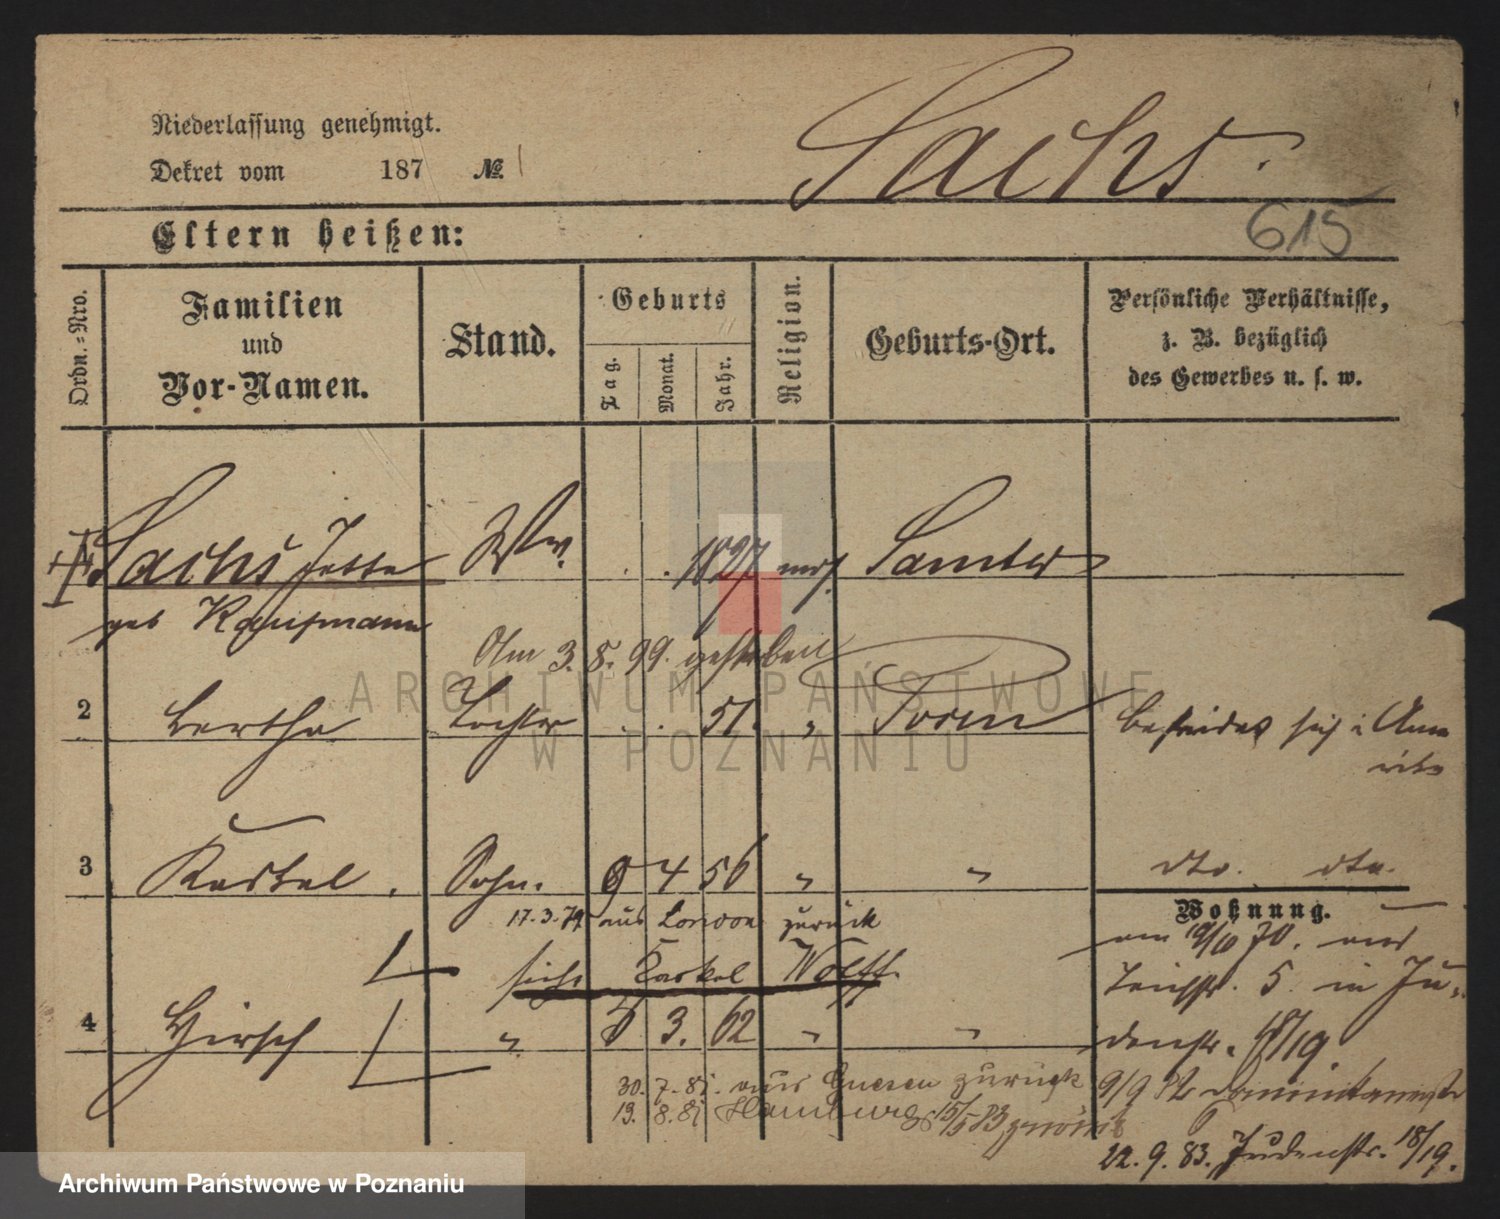 Niederlassung genehmigt.
Dekret vom 187 №
Sachs.
615
Eltern heißen:
Ordn.-Nro.
Familien
und
Vor-Namen.
Stand.
Geburts
Tag.
Monat.
Jahr.
Religion.
Geburts-Ort.
Persönliche Verhältnisse,
z. B. bezüglich
des Gewerbes u. s. w.
Sachs Jette Ww. 1827 mos. Samter
geb Kaufmann
Am 3. 8. 99. gestorben
ARCHIWUM PAŃSTWOWE
W POZNANIU
2 Bertha Tochter 51. " Posen befindet sich i Ame
rika
3 Kaskel. Sohn. 9 4 56 " " dto. dto.
Wohnung.
17.3.79 aus London zurück
am 19/10 70. aus
siehe Kaskel Wolff.
Teichstr. 5. in Ju-
4 Hirsch " 5 3. 62 " "
denstr. 18/19.
30. 7. 81. aus Gnesen zurück
9/9 82 Dominikanerstr
13. 8. 81 Hamburg 15/5 83 zurück
22. 9. 83. Judenstr. 18/19.
Archiwum Państwowe w Poznaniu